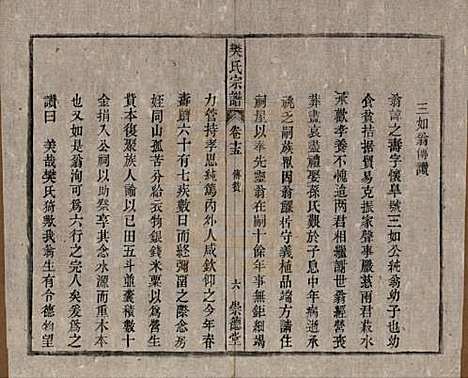 三如翁傳讚
翁諱之壽字懷阜號三如公純翁幼子也幼
食貧拮据貿易克振家聲事嚴慈兩君菽水
承歡孝養不倦迨兩君相繼謝世翁經營喪
葬盡哀盡禮娶孫氏艱於子息中年病逝承
祧乏嗣族眾因翁謹恪守義植品端方請住
祠屋以奉先靈翁在嗣十餘年事無鉅細竭
力管持孝思純篤內外人咸欽仰之今年春
壽躋六十有七疾數日而終彌留之際念房
姪同山辛苦分給衣物銀錢米粟以為營生
資本復聚族人人言曰己田五斗並囊積數十
金捐入公祠以助祭享共成水源而重木本
也又如翁洵可為六行之完人矣爰為之
讚曰 美哉樊氏猗歟我翁生有令德物望
樊氏宗譜 卷十五 傳贊 六 崇德堂